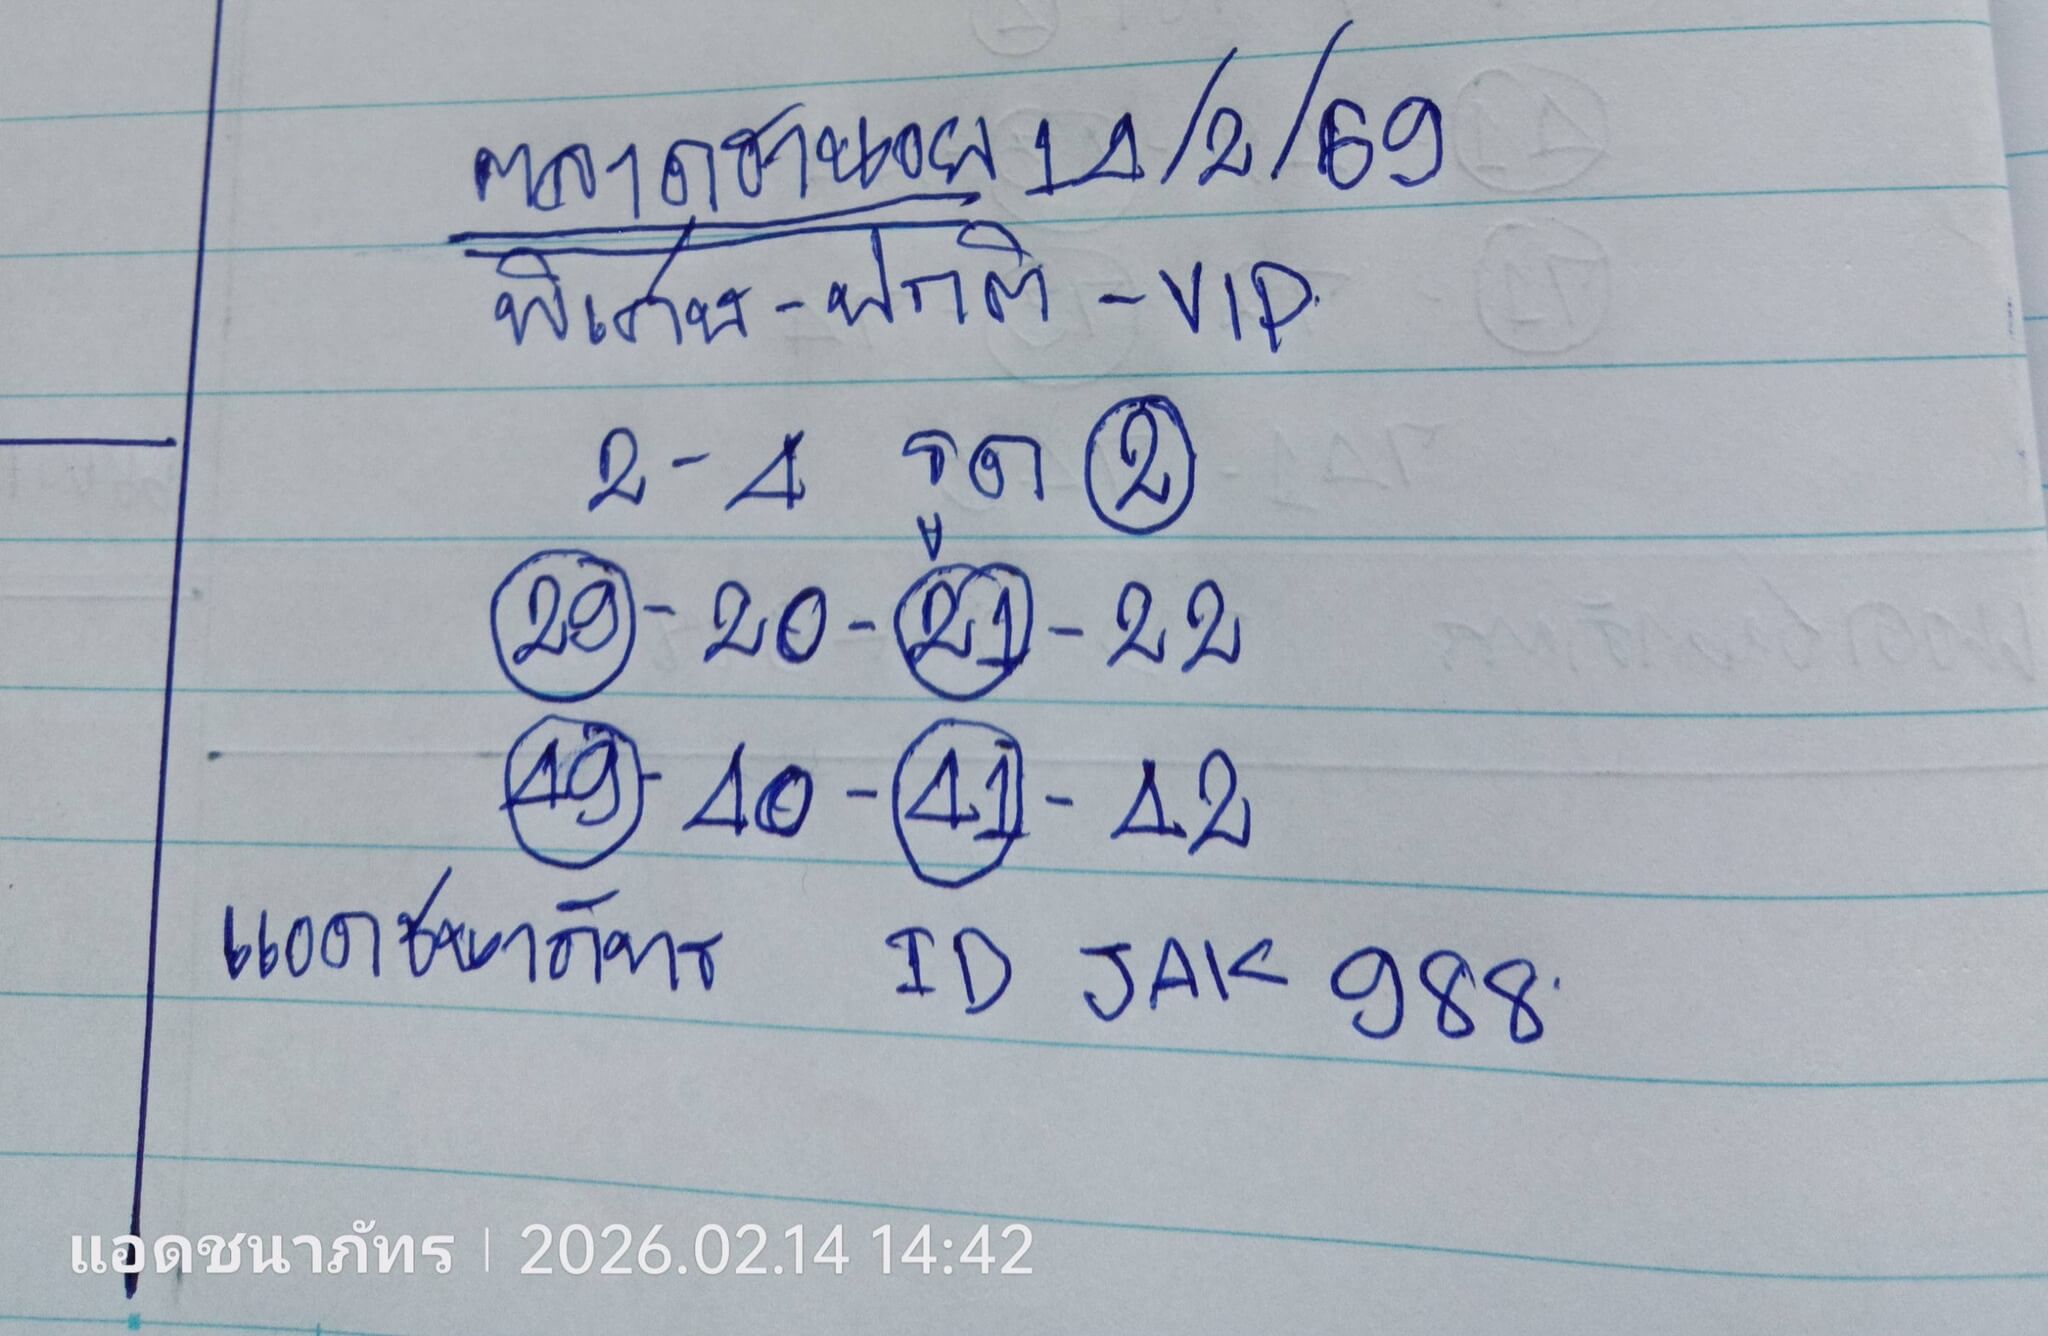 ตลาดฮานอย 14/2/69
พิเศษ-ปกติ-VIP
2-4 รูด 2
29-20-21-22
49-40-41-42
แอดชนาภัทร ID JAK 988.
แอดชนาภัทร | 2026.02.14 14:42